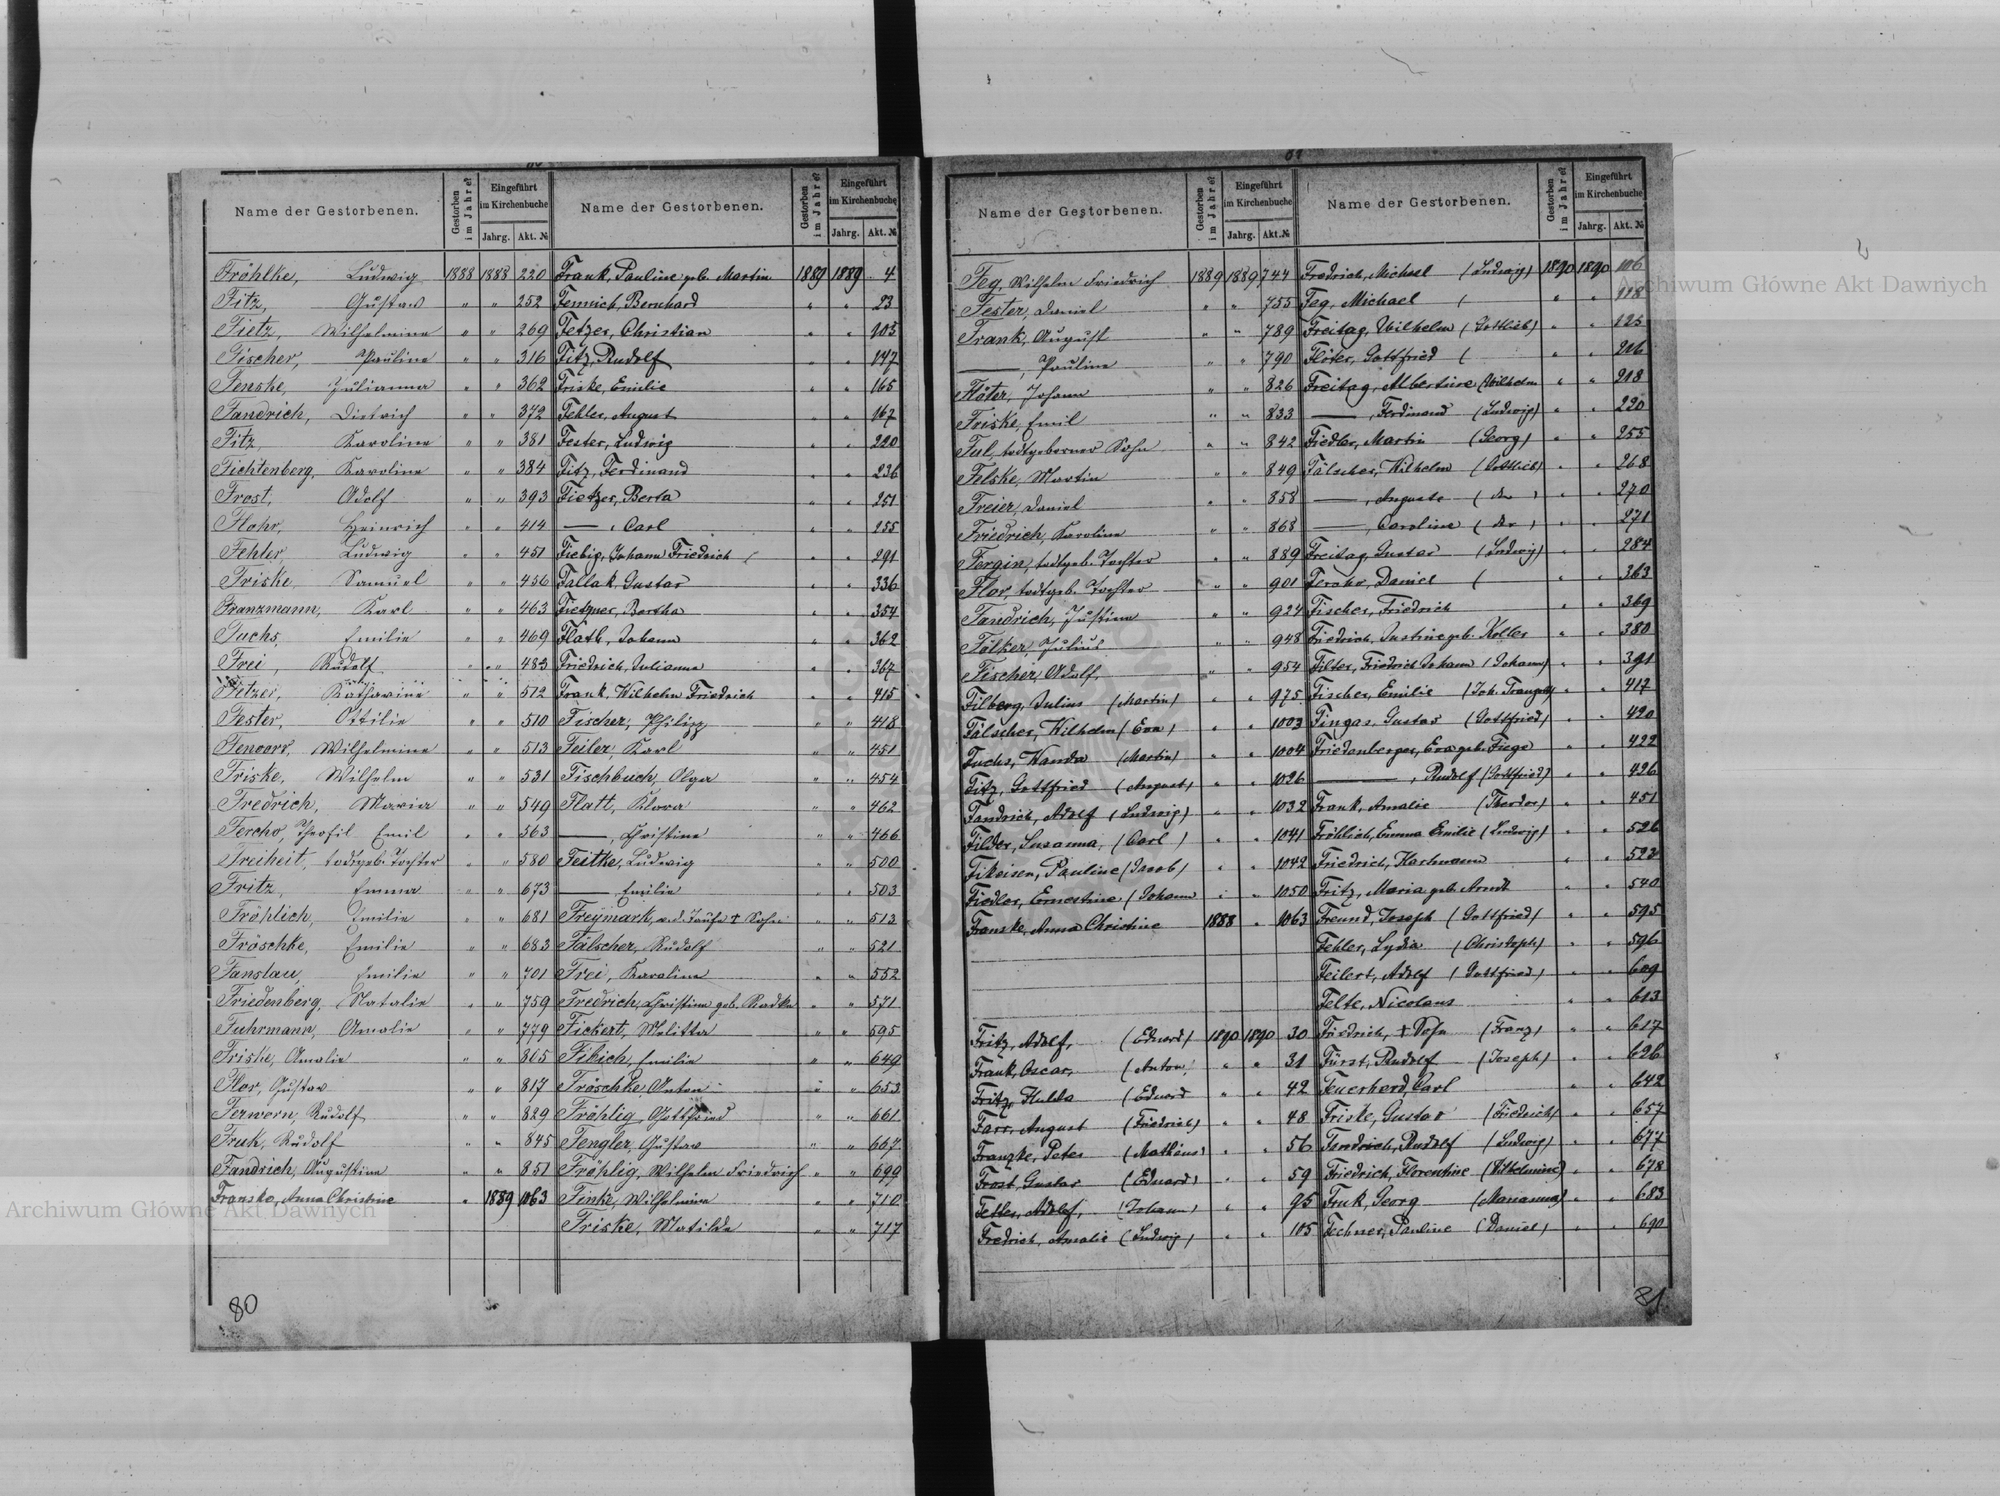 Name der Gestorbenen. Gestorben im Jahre Eingeführt im Kirchenbuche Jahrg. Akt. №
Fröhlke, Ludwig 1888 1888 220
Fitz, Gustav " " 252
Fietz, Wilhelmine " " 269
Fischer, Pauline " " 316
Fenske, Julianna " " 362
Fandrich, Dietrich " " 372
Fitz, Karoline " " 381
Fichtenberg, Karoline " " 384
Frost, Adolf " " 393
Flohr, Heinrich " " 414
Fehler, Ludwig " " 451
Friske, Samuel " " 456
Franzmann, Karl " " 463
Fuchs, Emilie " " 469
Frei, Rudolf " " 483
Katharine " " 512
Fester, Ottilie " " 510
Wilhelmine " " 513
Friske, Wilhelm " " 531
Fredrich, Maria " " 549
Fercho, Theofil Emil " " 563
Freiheit, todtgeb. Tochter " " 580
Fritz, Emma " " 673
Fröhlich, Emilie " " 681
Fröschke, Emilie " " 683
Fanslau, Emilie " " 701
Friedenberg, Natalie " " 759
Fuhrmann, Amalie " " 779
Friske, Amalie " " 805
Flor, Gustav " " 817
Ferworn, Rudolf " " 829
Fruk, Rudolf " " 845
Fandrich, Augustine " " 851
Franske, Anna Christine " 1889 1063
80
Name der Gestorbenen. Gestorben im Jahre Eingeführt im Kirchenbuche Jahrg. Akt. №
Frank, Pauline geb. Martin 1889 1889 4
Fennich, Bernhard " " 23
Fetzer, Christian " " 103
Fitz, Rudolf " " 147
Friske, Emilie " " 165
Fehler, August " " 167
Fester, Ludwig " " 220
Fitz, Ferdinand " " 236
Fietzer, Berta " " 251
—, Carl " " 255
Fiebig, Johann Friedrich " " 291
Fallak, Gustav " " 336
Bertha " " 354
Flath, Johann " " 362
Friedrich, Julianna " " 367
Frank, Wilhelm Friedrich " " 415
Fischer, Philipp " " 418
Feiler, Karl " " 451
Fischbuch, Olga " " 454
Flatt, Klara " " 462
—, Christine " " 466
Feitke, Ludwig " " 500
—, Emilie " " 503
Freymark, v. d. Taufe † Sohn " " 513
Fälscher, Rudolf " " 521
Frei, Karoline " " 552
Fredrich, Christine geb. Radke " " 571
Fickert, Melitta " " 595
Fibich, Emilie " " 649
Fröschke, Anton " " 653
Fröhlig, Gottfried " " 661
Fengler, Gustav " " 667
Fröhlig, Wilhelm Friedrich " " 699
Fink, Wilhelmine " " 710
Friske, Matilde " " 717
Name der Gestorbenen. Gestorben im Jahre Eingeführt im Kirchenbuche Jahrg. Akt. №
Feg, Wilhelm Friedrich 1889 1889 744
Fester, Daniel " " 755
Frank, August " " 789
—, Pauline " " 790
Flöter, Johann " " 826
Friske, Emil " " 833
Ful, todtgeborner Sohn " " 842
Felske, Martin " " 849
Freier, Daniel " " 858
Friedrich, Karoline " " 868
Fergin, todtgeb. Tochter " " 889
Flor, todtgeb. Tochter " " 901
Fandrich, Justine " " 924
Fölker, Julius " " 948
Fischer, Adolf " " 954
Filberg, Julius (Martin) " " 975
Fälscher, Wilhelm (Eva) " " 1003
Fuchs, Wanda (Martin) " " 1004
Fitz, Gottfried (August) " " 1026
Fandrich, Adolf (Ludwig) " " 1032
Filder, Susanna, (Carl) " " 1041
Fikeisen, Pauline (Jacob) " " 1042
Fiedler, Ernestine (Johann " " 1050
Franske, Anna Christine 1888 " 1063
Fritz, Adolf, (Eduard) 1890 1890 30
Frank, Oscar, (Anton) " " 31
Fritz, Hulda (Eduard " " 42
Farr, August (Friedrich) " " 48
Franzke, Peter (Mathäus) " " 56
Frost, Gustav (Eduard) " " 59
Adolf, (Johann) " " 95
Fredrich, Amalie (Ludwig) " " 105
Name der Gestorbenen. Gestorben im Jahre Eingeführt im Kirchenbuche Jahrg. Akt. №
Fredrich, Michael (Ludwig) 1890 1890 106
Feg, Michael ( " " 118
Freitag, Wilhelm (Gottlieb) " " 125
Flöter, Gottfried ( " " 216
Freitag, Albertine (Wilhelm " " 218
—, Ferdinand (Ludwig) " " 220
Fiedler, Martin (Georg) " " 255
Fälscher, Wilhelm (Gottlieb) " " 268
—, Auguste (do) " " 270
—, Caroline (do) " " 271
Freitag, Gustav (Ludwig) " " 284
Fercho, Daniel ( " " 363
Fischer, Friedrich " " 369
Friedrich, Justine geb. Koller " " 380
Filter, Friedrich Johann (Johann) " " 391
Fischer, Emilie (Joh. Traugott) " " 417
Fingas, Gustav (Gottfried) " " 420
Friedenberger, Eva geb. Fiege " " 422
—, Rudolf (Gottfried) " " 426
Frank, Amalie (Theodor) " " 451
Fröhlich, Emma Emilie (Ludwig) " " 526
Friedrich, Hartmann " " 523
Fritz, Maria geb. Arndt " " 540
Freund, Joseph (Gottfried) " " 595
Fehler, Lydia (Christoph) " " 596
Feilert, Adolf (Gottfried) " " 609
Felte, Nicolaus " " 613
Friedrich, † Sohn (Franz) " " 617
Fürst, Rudolf (Joseph) " " 626
Feuerherd, Carl " " 642
Friske, Gustav (Friedrich) " " 657
Fandrich, Rudolf (Ludwig) " " 677
Friedrich, Florentine (Wilhelmine) " " 678
Fruk, Georg (Marianna) " " 683
Fechner, Pauline (Daniel) " " 690
81
Archiwum Główne Akt Dawnych
Archiwum Główne Akt Dawnych